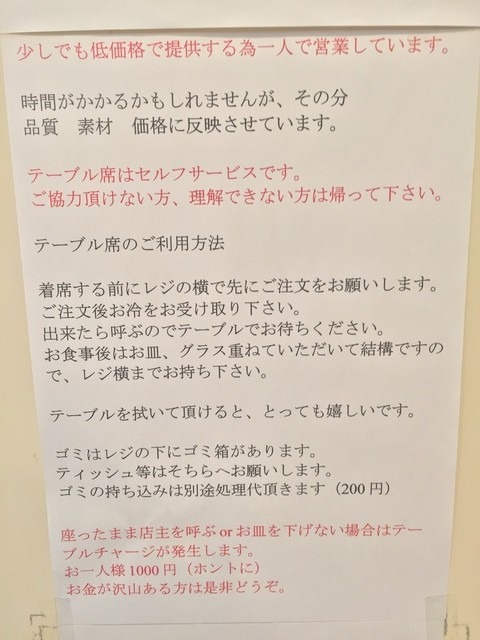 少しでも低価格で提供する為一人で営業しています。
時間がかかるかもしれませんが、その分
品質　素材　価格に反映させています。
テーブル席はセルフサービスです。
ご協力頂けない方、理解できない方は帰って下さい。
テーブル席のご利用方法
着席する前にレジの横で先にご注文をお願いします。
ご注文後お冷をお受け取り下さい。
出来たら呼ぶのでテーブルでお待ちください。
お食事後はお皿、グラス重ねていただいて結構ですの
で、レジ横までお持ち下さい。
テーブルを拭いて頂けると、とっても嬉しいです。
ゴミはレジの下にゴミ箱があります。
ティッシュ等はそちらへお願いします。
ゴミの持ち込みは別途処理代頂きます（200 円）
座ったまま店主を呼ぶ or お皿を下げない場合はテー
ブルチャージが発生します。
お一人様 1000 円（ホントに）
お金が沢山ある方は是非どうぞ。